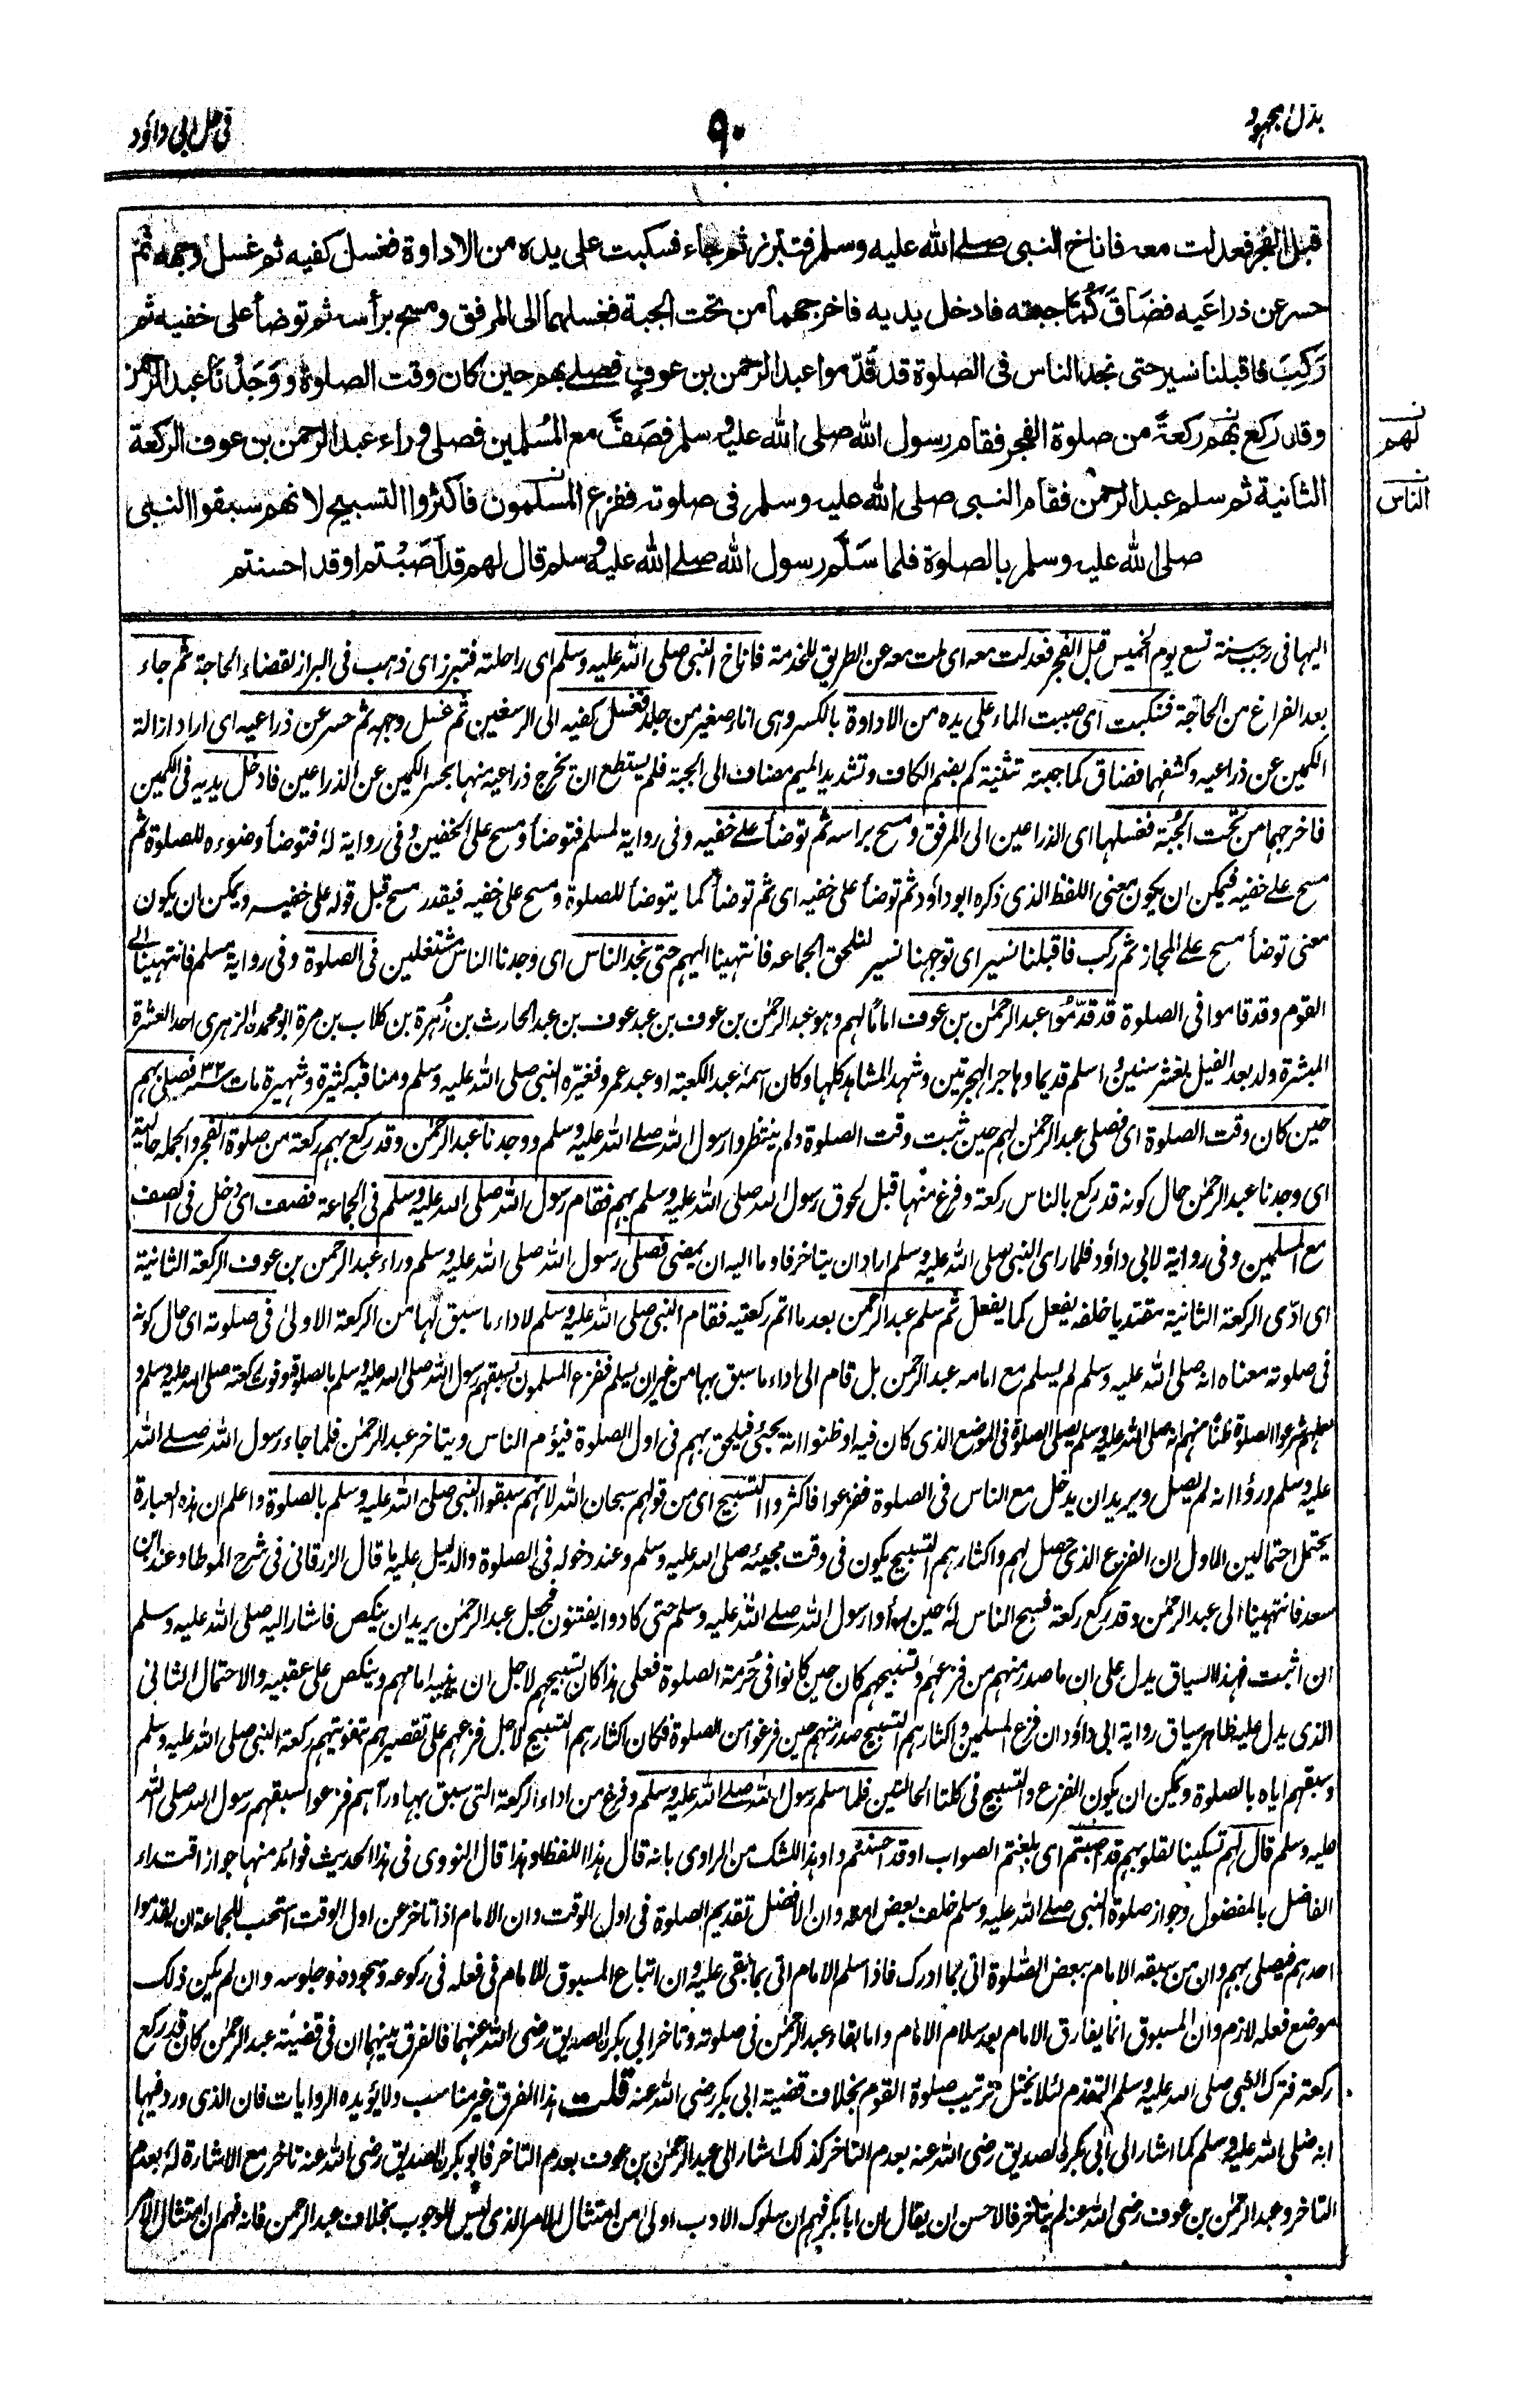 بذل المجهود
٩٠
في حل ابي داؤد
قبل الفجر فعدلت معه فاناخ النبى صلے الله عليه وسلم فتبرز ثم جاء فسكبت على يده من الاداوة فغسل كفيه ثم غسل وجهه ثم
حسر عن ذراعيه فضاق كما جبته فادخل يديه فاخرجهما من تحت الجبة فغسلهما الى المرفق ومسح برأسه ثم توضأ على خفيه ثم
ركب فاقبلنا نسير حتى نجد الناس فى الصلوة قد قدموا عبد الرحمن بن عوف فصلے بهم حين كان وقت الصلوة ووجدنا عبد الرحمن
وقد ركع بهم ركعة من صلوة الفجر فقام رسول الله صلى الله عليه وسلم فصف مع المسلمين فصلى وراء عبد الرحمن بن عوف الركعة
لهم
الثانية ثم سلم عبد الرحمن فقام النبى صلى الله عليه وسلم فى صلوته ففزع المسلمون فاكثروا التسبيح لانهم سبقوا النبى
الناس
صلى الله عليه وسلم بالصلوة فلما سلم رسول الله صلے الله عليه وسلم قال لهم قد اصبتم او قد احسنتم
اليها فى رجب سنة تسع يوم الخميس قبل الفجر فعدلت معه اى ملت معه عن الطريق للخدمة فاناخ النبى صلى الله عليه وسلم اى راحلته فتبرز اى ذهب فى البراز لقضاء الحاجة ثم جاء
بعد الفراغ من الحاجة فسكبت اى صببت الماء على يده من الاداوة بالكسر وهى اناء صغير من جلد فغسل كفيه الى الرسغين ثم غسل وجهه ثم حسر عن ذراعيه اى اراد ازالة
الكمين عن ذراعيه وكشفهما فضاق كما جبته تثنية كم بضم الكاف وتشديد الميم مضاف الى الجبة فلم يستطع ان يخرج ذراعيه منها بحسر الكمين عن الذراعين فادخل يديه فى الكمين
فاخرجهما من تحت الجبة فغسلهما اى الذراعين الى المرفق ومسح براسه ثم توضأ علے خفيه وفى رواية لمسلم فتوضأ ومسح على الخفين وفى رواية له فتوضأ وضوءه للصلوة ثم
مسح علے خفيه فيمكن ان يكون معنى اللفظ الذى ذكره ابو داؤد ثم توضأ على خفيه اى ثم توضأ كما يتوضأ للصلوة ومسح على خفيه فيقدر مسح قبل قوله على خفيه ويمكن ان يكون
معنى توضأ مسح علے المجاز ثم ركب فاقبلنا نسير اى توجهنا نسير لنلحق الجماعة فانتهينا اليهم حتى نجد الناس اى وجدنا الناس مشتغلين فى الصلوة وفى رواية مسلم فانتهينا الے
القوم وقد قاموا فى الصلوة قد قدموا عبد الرحمٰن بن عوف اماما لهم وهو عبد الرحمٰن بن عوف بن عبد عوف بن عبد الحارث بن زهرة بن كلاب بن مرة ابو محمد الزهرى احد العشرة
المبشرة ولد بعد الفيل بعشر سنين اسلم قديما وهاجر الهجرتين وشهد المشاهد كلها وكان اسمه عبد الكعبة او عبد عمرو فغيره النبى صلى الله عليه وسلم ومناقبه كثيرة وشهيرة مات سنه ٣٢ فصلى بهم
حين كان وقت الصلوة اى فصلى عبد الرحمٰن لهم حين ثبت وقت الصلوة ولم ينتظروا رسول الله صلے الله عليه وسلم ووجدنا عبد الرحمٰن وقد ركع بهم ركعة من صلوة الفجر والجملة حالية
اى وجدنا عبد الرحمٰن حال كونه قد ركع بالناس ركعة وفرغ منها قبل لحوق رسول الله صلى الله عليه وسلم بهم فقام رسول الله صلى الله عليه وسلم فى الجماعة فصف اى دخل فى الصف
مع المسلمين وفى رواية لابى داؤد فلما راى النبى صلى الله عليه وسلم اراد ان يتاخر فاوما اليه ان يمضى فصلى رسول الله صلى الله عليه وسلم وراء عبد الرحمن بن عوف الركعة الثانية
اى ادّى الركعة الثانية مقتديا خلفه يفعل كما يفعل ثم سلم عبد الرحمن بعد ما اتم ركعتيه فقام النبى صلى الله عليه وسلم لاداء ما سبق لها من الركعة الاولىٰ فى صلوته اى حال كونه
فى صلوته معناه انه صلى الله عليه وسلم لم يسلم مع امامه عبد الرحمن بل قام الى اداء ما سبق بها من غير ان يسلم ففزع المسلمون لسبقهم رسول الله صلى الله عليه وسلم بالصلوة وفوت ركعته صلى الله عليه وسلم و
شرعوا الصلوة ظنا منهم انه صلى الله عليه وسلم يصلى الصلوة فى الموضع الذى كان فيه او ظنوا انه يجئى فيلحق بهم فى اول الصلوة فيؤم الناس ويتاخر عبد الرحمٰن فلما جاء رسول الله صلے الله
عليه وسلم ورؤا انه لم يصل ويريد ان يدخل مع الناس فى الصلوة ففزعوا فاكثروا التسبيح اى من قولهم سبحان الله لانهم سبقوا النبى صلى الله عليه وسلم بالصلوة واعلم ان هذه العبارة
يحتمل احتمالين الاول ان الفزع الذى حصل لهم واكثارهم التسبيح يكون فى وقت مجيئه صلى الله عليه وسلم وعند دخوله فى الصلوة والدليل عليه ما قال الزرقانى فى شرح الموطا وعند ابن
سعد فانتهينا الى عبد الرحمٰن وقد ركع ركعة فسبح الناس له حين رأوا رسول الله صلے الله عليه وسلم حتى كادوا يفتنون فجعل عبد الرحمٰن يريد ان ينكص فاشار اليه صلى الله عليه وسلم
ان اثبت فهذا السياق يدل على ان ما صدر منهم من فزعهم وتسبيحهم كان حين كانوا فى حرمة الصلوة فعلى هذا كان تسبيحهم لاجل ان ينبه امامهم وينكص على عقبيه والاحتمال الثانى
الذى يدل عليه ظاهر سياق رواية ابى داؤد ان فزع المسلمين واكثارهم التسبيح صدر منهم حين فرغوا من الصلوة فكان اكثارهم التسبيح لاجل فزعهم على تقصيرهم بتفويتهم ركعة النبى صلى الله عليه وسلم
وسبقهم اياه بالصلوة ويمكن ان يكون الفزع والتسبيح فى كلتا الحالتين فلما سلم رسول الله صلے الله عليه وسلم وفرغ من اداء الركعة التى سبق بها ورآهم فزعوا لسبقهم رسول الله صلى الله
عليه وسلم قال لهم تسكينا لقلوبهم قد اصبتم اى بلغتم الصواب او قد احسنتم واو هذا للشك من الراوى بانه قال هذا اللفظ او هذا قال النووى فى هذا الحديث فوائد منها جواز اقتداء
الفاضل بالمفضول وجواز صلوة النبى صلے الله عليه وسلم خلف بعض امته وان الافضل تقديم الصلوة فى اول الوقت وان الامام اذا تاخر عن اول الوقت استحب للجماعة ان يقدموا
احدهم فيصلى بهم وان من سبقه الامام ببعض الصلوة اتى بما ادرك فاذا سلم الامام اتى بما بقى عليه وان اتباع المسبوق للامام فى فعله فى ركوعه وسجوده وجلوسه وان لم يكن ذلك
موضع فعله لازم وان المسبوق انما يفارق الامام بعد سلام الامام واما بقاء عبد الرحمٰن فى صلوته وتاخر ابى بكر الصديق رضى الله عنهما فالفرق بينهما ان فى قضية عبد الرحمٰن كان قد ركع
ركعة فترك النبى صلى الله عليه وسلم التقدم لئلا يختل ترتيب صلوة القوم بخلاف قضية ابى بكر رضى الله عنه قلت هذا الفرق غير مناسب ولا يؤيده الروايات فان الذى ورد فيها
انه صلى الله عليه وسلم كما اشار الى ابى بكر الصديق رضى الله عنه بعدم التاخر كذلك اشار الى عبد الرحمٰن بن عوف بعدم التاخر فابو بكر الصديق رضى الله عنه تاخر مع الاشارة له بعدم
التاخر وعبد الرحمٰن بن عوف رضى الله عنه لم يتاخر فالاحسن ان يقال ان ابا بكر فهم ان سلوك الادب اولىٰ من امتثال الامر الذى ليس للوجوب بخلاف عبد الرحمن فانه فهم ان امتثال الامر